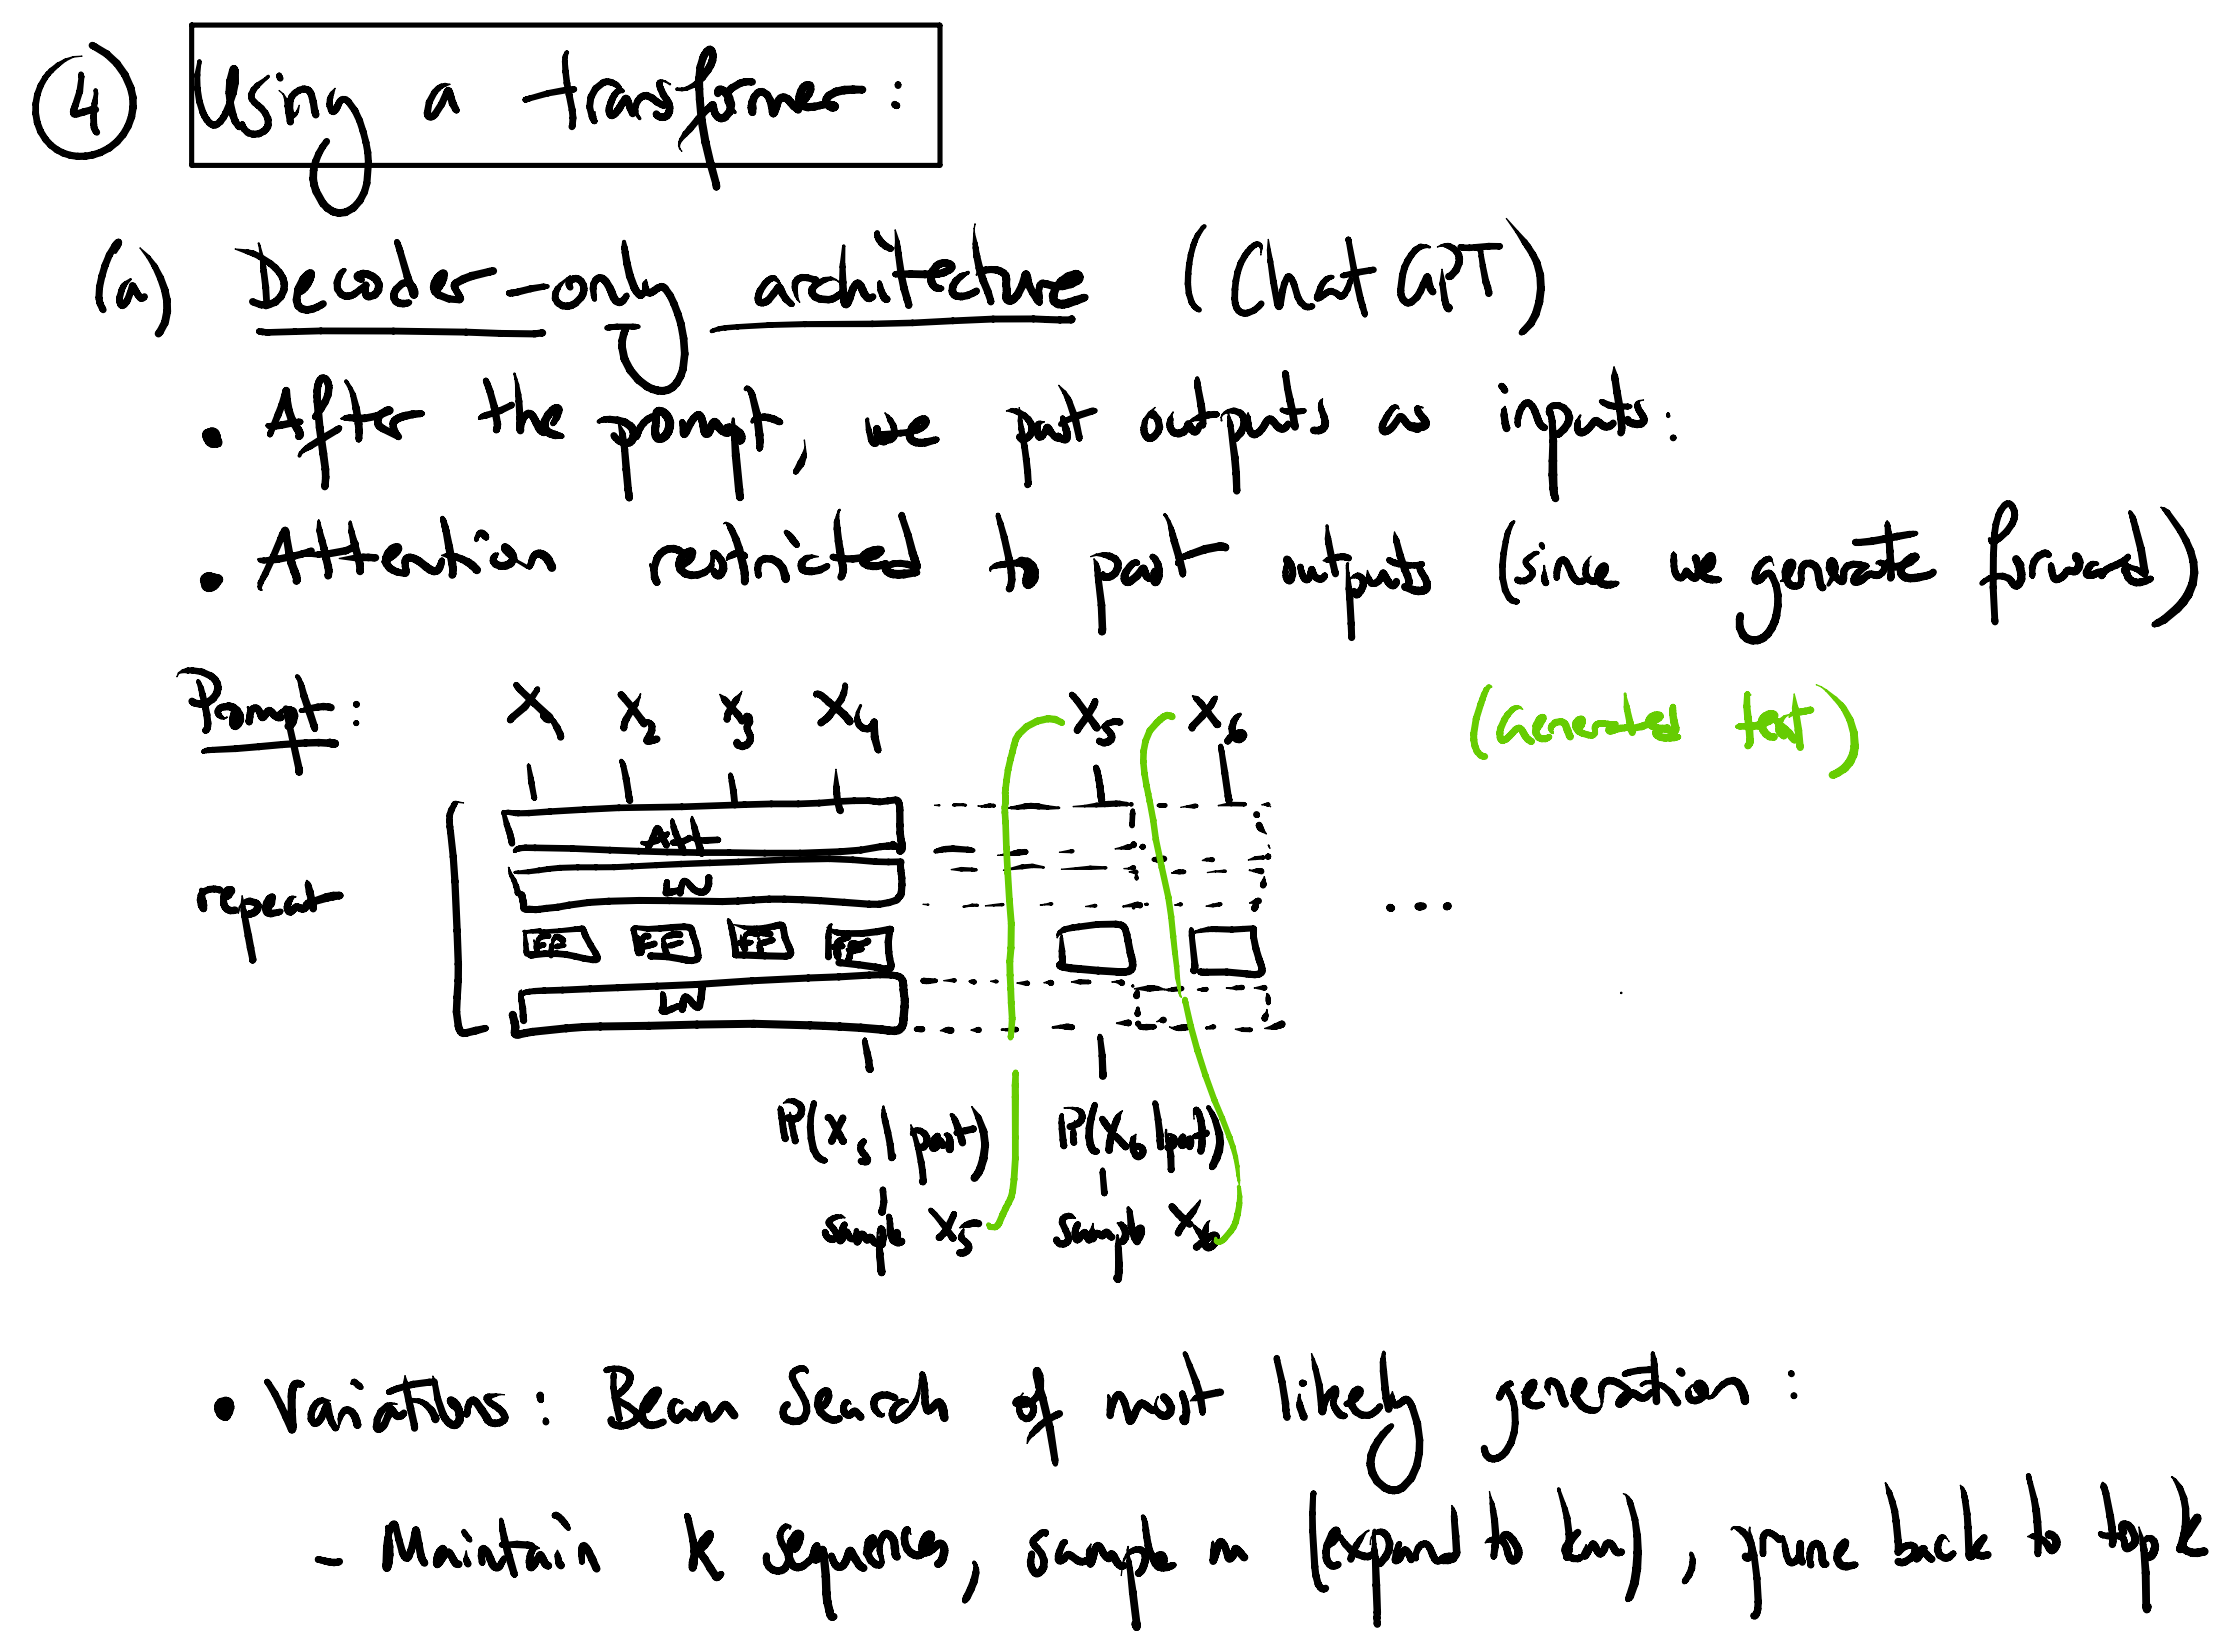 ④ Using a transformer:
(a) Decoder-only architecture (ChatGPT)
• After the prompt, we put outputs as inputs:
• Attention restricted to past outputs (since we generate forward)
Prompt: X₁ X₂ X₃ X₄ X₅ X₆ (Generated text)
Att
repeat LN ...
FF FF FF FF
LN
P(X₅ | past) P(X₆ | past)
sample X₅ sample X₆
• Variations: Beam Search of most likely generation:
- Maintain k sequences, sample m (expand to km), prune back to top k